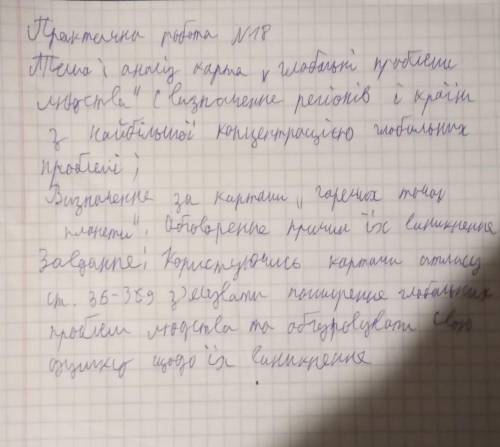 Практична робота №18
Тема: аналіз карта "глобальні проблеми
людства" (визначення регіонів і країн
з найбільшої концентрацією глобальних
проблем;
Визначенне за картами "гарячих точок
планети". Обговоренне причин їх виникнення
Завдання: Користуючись картами атласу
ст. 36-369 з'ясувати поширення глобальних
проблем людства та обґрунтувати свою
думку щодо їх виникнення